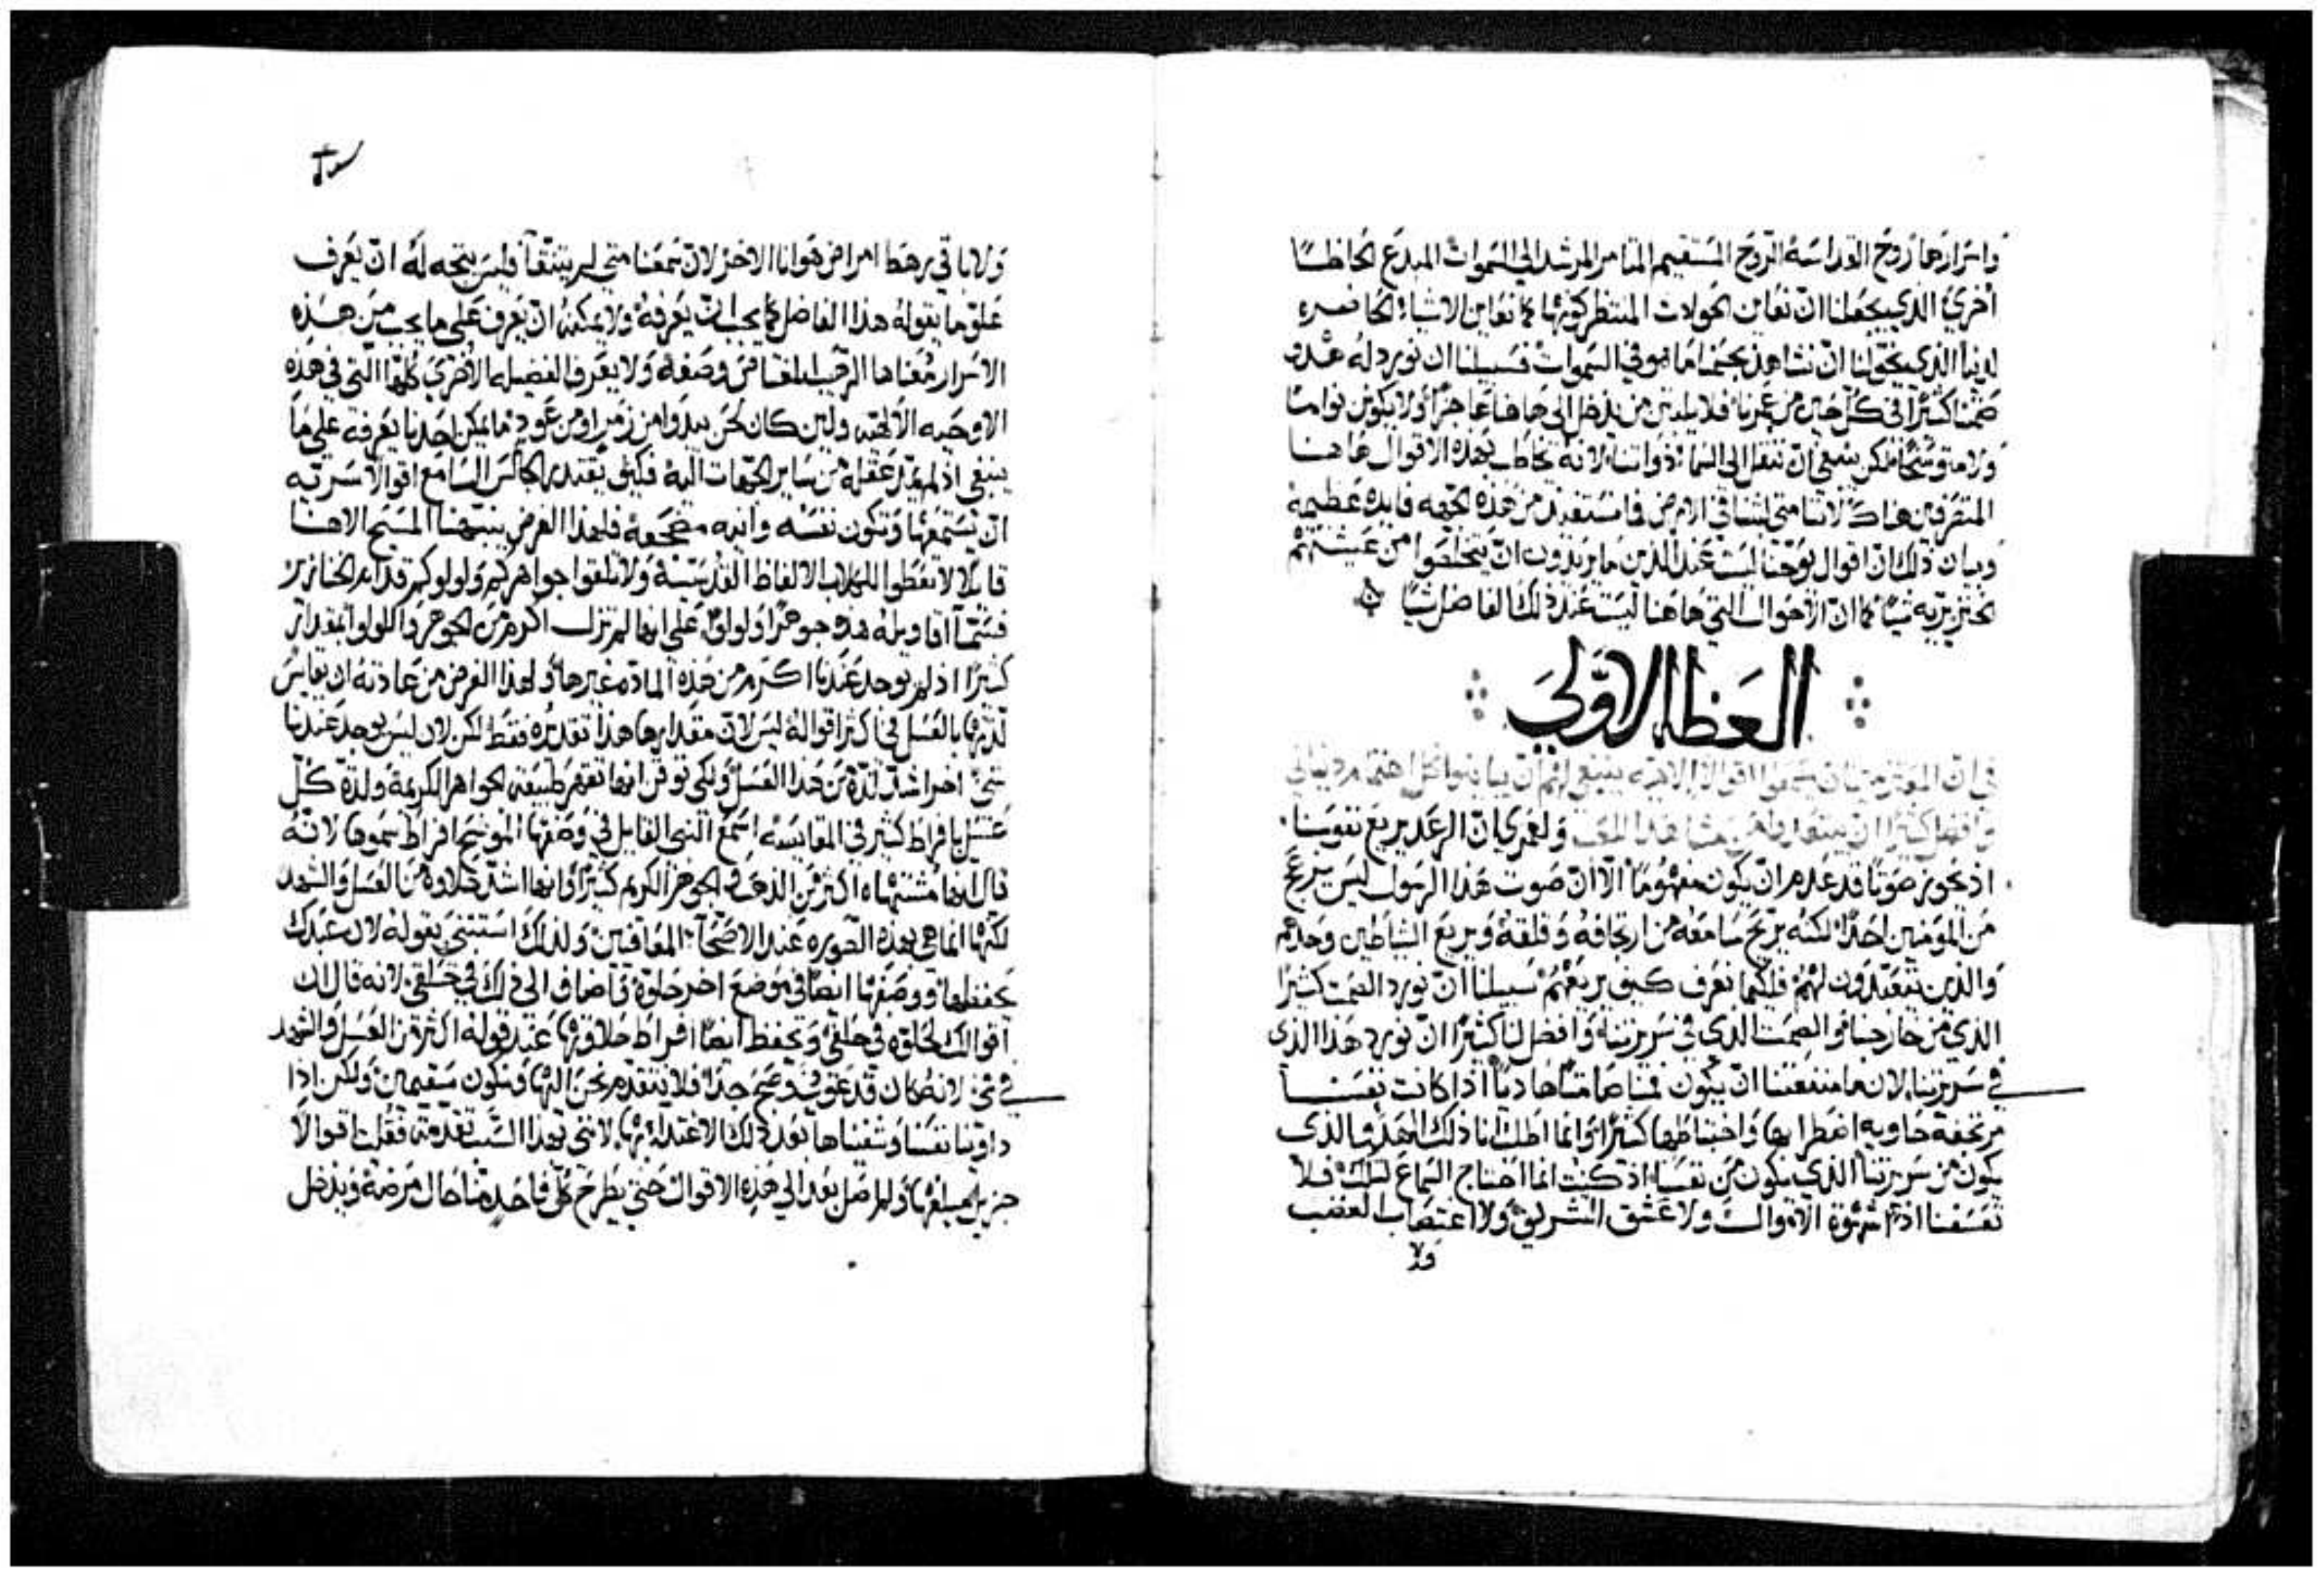 واسرارها روح القداسه الروح المستقيم التام المرشد الي السموات المبدع الحاظًا
اخري الذي يجعلنا ان نعاين الحولات المنتظر كونها كما نعاين الاشياء الحاضره
لدينا الذي يخولنا ان نشاهد بجسمنا ما هو في السموات فسبيلنا ان نورد له هدوًا
صمتًا كثيرًا في كل حين من عمرنا فلا يلبثن من يدخل الي هاهنا عاجزًا ولا يكونن نوامًا
ولا متوسخًا لكن ينبغي ان ننتقل الي السماء ذواتنا لانه يخاطب بهذه الاقوال هاهنا
المتصرفين هناك لاننا متي لبثنا في الارض فما نستفيد من هذه الجهه فايده عظيمة
وبيان ذلك ان اقوال يوحنا ليست عند الذين ما يريدون ان يتخلصوا من عيشتهم
الخنزيريه شيًا كما ان الاحوال التي هاهنا ليست عند ذلك الفاضل شيًا
العظه الاولي
في ان المعتزمين ان يسمعوا الاقوال الالاهيه ينبغي لهم ان يباينوا كل اهتمام دنياني
ولعمري ان الرعد يريع نفوسنا
اذ يحوز صوتًا قد عدم ان يكون مفهومًا الا ان صوت هذا الرسول ليس يزعج
من المومنين احدًا لكنه يريح سامعه من ارتجافه وقلقه ويريع الشياطين وحدهم
والذين يتعبدون لهم فلكيما نعرف كيف يريعهم سبيلنا ان نورد الصمت كثيرًا
الذي من خارجنا والصمت الذي في سريرتنا وافضل لنا كثيرًا ان نورد هذا الذي
في سريرتنا لان ما منفعتنا ان يكون فمنا صامتًا هاديًا اذا كانت نفسنا
مرتجفة حاويه اضطرابها واختباطها كثيرًا وانما اطلب انا ذلك الهدو الذي
يكون من سريرتنا الذي يكون من نفسنا اذ كنت انما احتاج السماع لتلك فلا
تعسفنا اذًا شهوة الاموال ولا عشق التشريف ولا اغتصاب الغضب
ولا
ولا باقي رهط امراض هوانا الاخر لان سمعنا متي لم يتنقا فليس يتجه له ان يعرف
علو ما يقوله هذا الفاضل كما يجب ان يعرفه ولا يمكنه ان يعرف علي ما يجب من هذه
الاسرار معناها الرهيب المعتاص وصفه ولا يعرف الفضيله الاخري كلها التي في هذه
الاوحيه الالهيه ولين كان لحن يبدوا من زمير او من عود ما يمكن احدنا يعرفه علي ما
ينبغي اذ لم يمد عقله من ساير الجهات اليه فكيف يقتدر الجالس السامع اقوالا سريه
ان يستمعها وتكون نفسه وانيه مضجعه فلهذا الغرض ينبهنا المسيح الاهنا
قايلًا لا تعطوا للكلاب الالفاظ القدسيه ولا تلقوا جواهركم ولولوكم قدام الخنازير
فسما اقاويله هذه جوهرًا ولولوا علي انها لم تزل اكرم من الجوهر واللولو بمقدار
كثيرًا اذ لم يوجد عندنا اكرم من هذه الماده غيرها ولهذا الغرض من عادته ان يقايس
لذتها بالعسل في اكثر اقواله ليس لان مقدارها هذا تقديره فقط لكن لان ليس يوجد عندنا
شي اخر اشد لذة من هذا العسل ولكي توقن انها تقهر طبيعة الجواهر الكريمة ولذة كل
عسل بافراط كثير في المقايسه اسمع النبي القايل في وصفها الموضح افراط سموها لانه
قال انها مشتهاه اكثر من الذهب والجوهر الكريم كثيرًا وانها اشد حلاوه من العسل والشهد
لكنها انما هي بهذه الصوره عند الاصحاء المعافين ولذلك استثني بقوله لان عبدك
يحفظها ووصفها ايضًا في موضع اخر حلوة فاضاف الي ذلك في حلقي لانه قال ان
اقوالك لحلوه في حلقي ويحفظ ايضًا افراط حلاوتها عند قوله اكثر من العسل والشهد
في فمي لانه كان قد عوفي وصح جدًا فلا يتقدم نحن اليها ونكون سقيمين ولكن اذا
داوينا نفسنا وشفيناها بعد ذلك الاغتذاء بها لانني بهذا السبب تقدمت فقلت اقوالا
ولم اصل بعد الي هذه الاقوال حتي يطرح كل واحد منا حال مرضه ويدخل